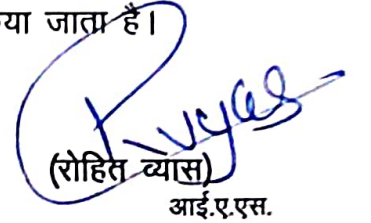 या जाता है।
Rvyas
(रोहित व्यास)
आई.ए.एस.